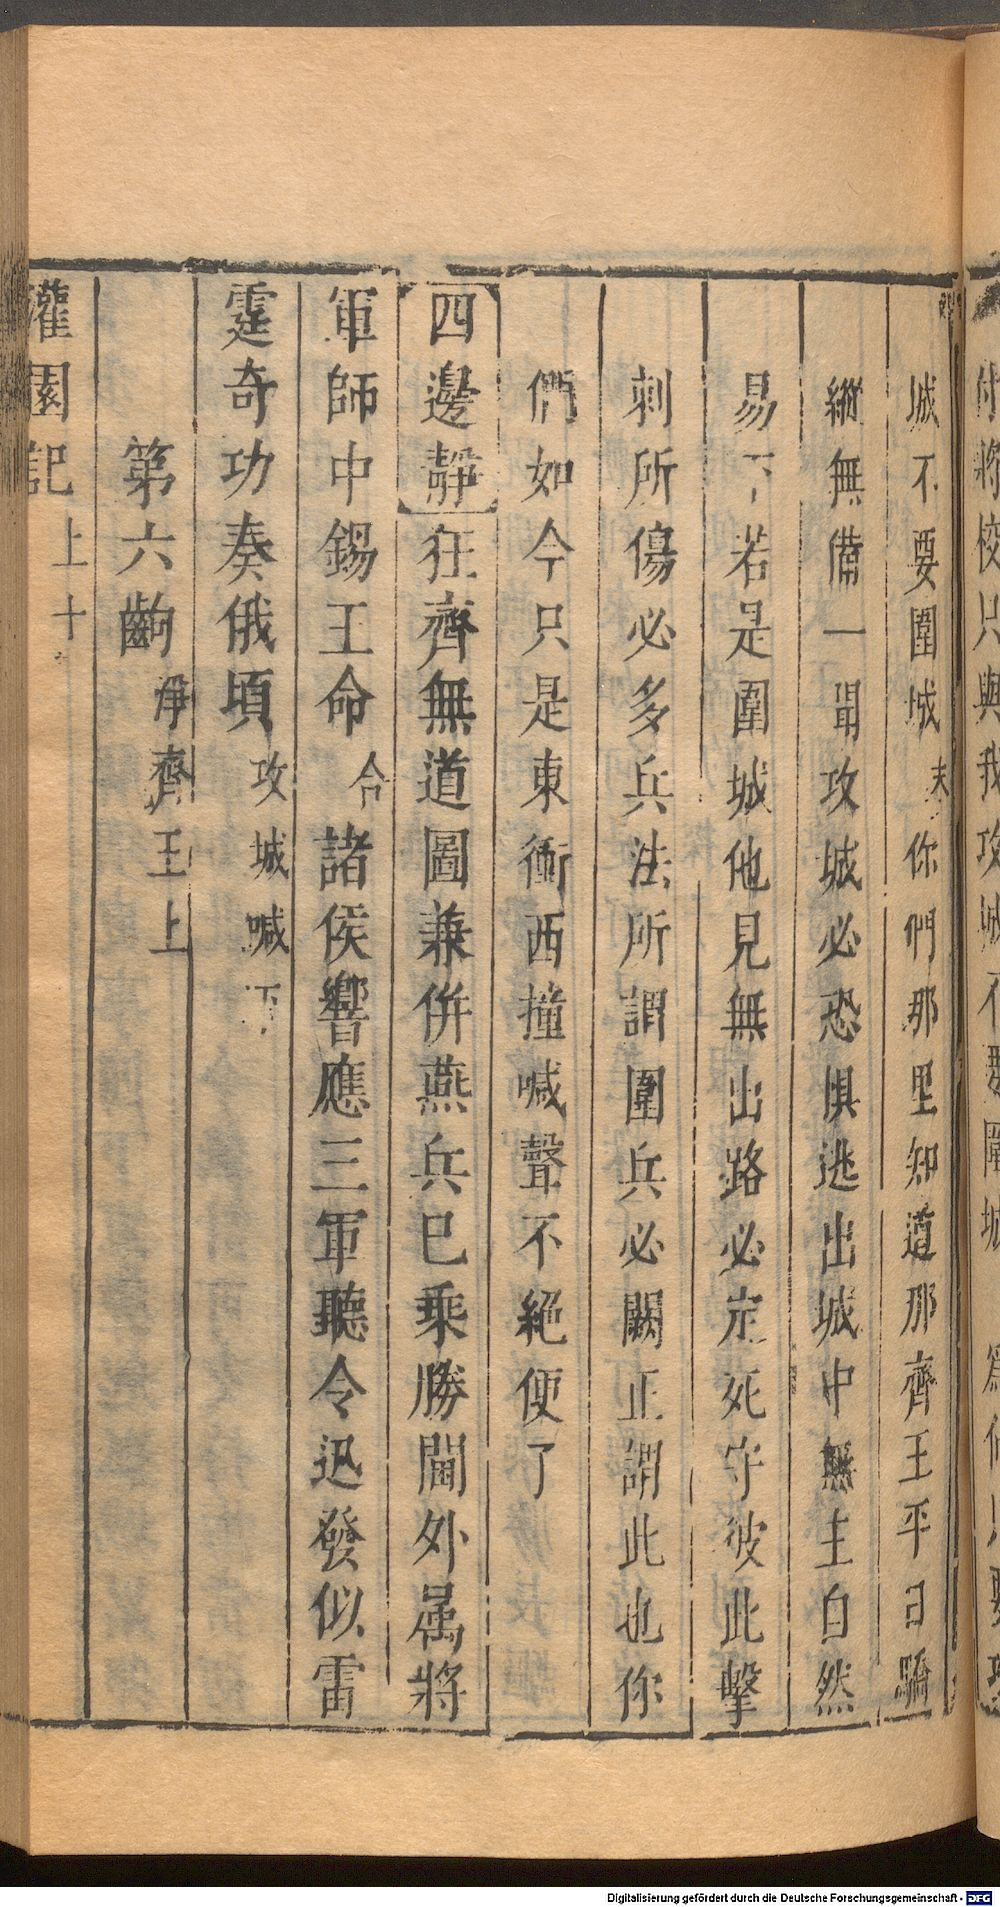 付將校只與我攻城不要圍城
城不要圍城末你們那里知道那齊王平日驕
縱無備一聞攻城必恐惧逃出城中無主自然
易下若是圍城他見無出路必定死守彼此擊
刺所傷必多兵法所謂圍兵必闕正謂此也你
們如今只是東衝西撞喊聲不絕便了
四邊靜狂齊無道圖兼併燕兵已乘勝閫外属將
軍師中錫王命合諸侯響應三軍聽令迅發似雷
霆奇功奏俄頃攻城喊下
第六齣淨齊王上
灌園記上十
Digitalisierung gefördert durch die Deutsche Forschungsgemeinschaft - DFG